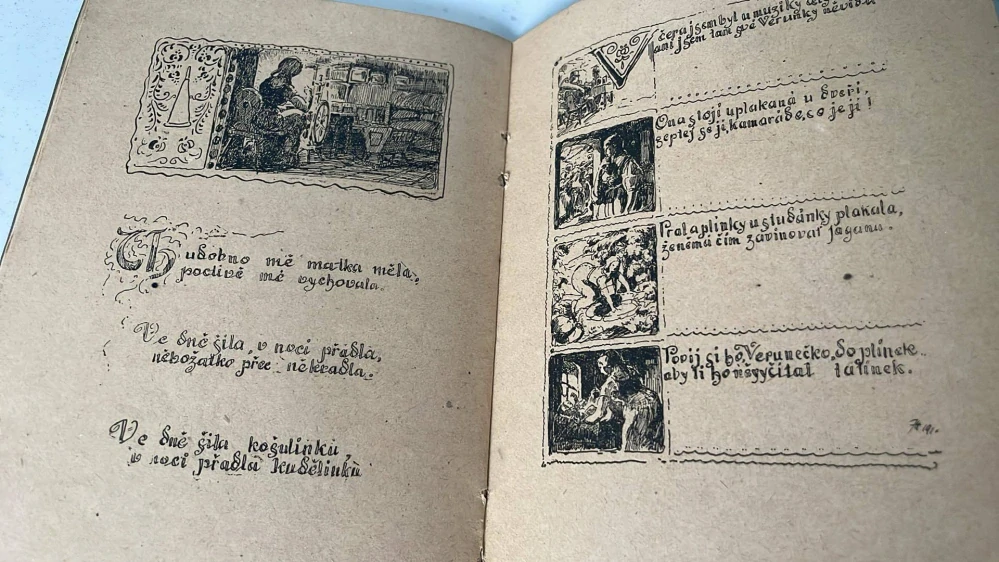 Chudobno mě matka měla,
poctivě mě vychovala.
Ve dně šila, v noci přadla,
nebožatko přec nekradla.
Ve dně šila košulinků
v noci přadla kudělinků
Včera jsem byl u muziky
ani jsem tam své Verunky neviděl
Ona stojí uplakaná u dveří,
zeptej se jí, kamaráde, co je jí!
Prala plínky u studánky plakala,
že nemá čím zavinovať
Povij si ho, Verunečko, do plínek
aby ti ho nevyčítal tatínek.